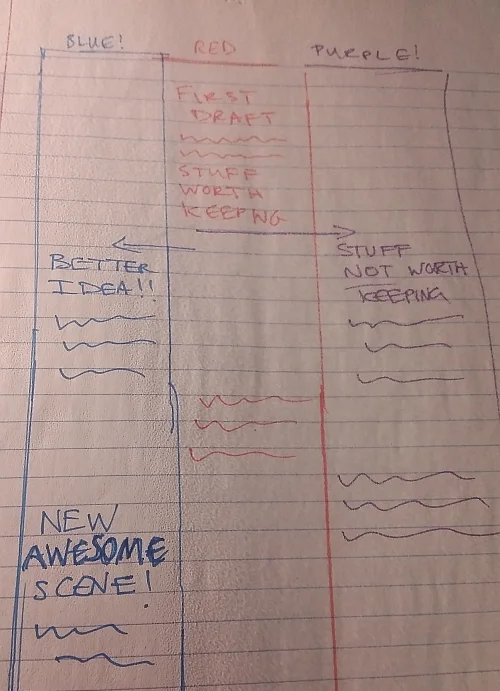 BLUE!
RED
PURPLE!
FIRST
DRAFT
STUFF
WORTH
KEEPING
BETTER
IDEA!!
STUFF
NOT WORTH
KEEPING
NEW
AWESOME
SCENE!